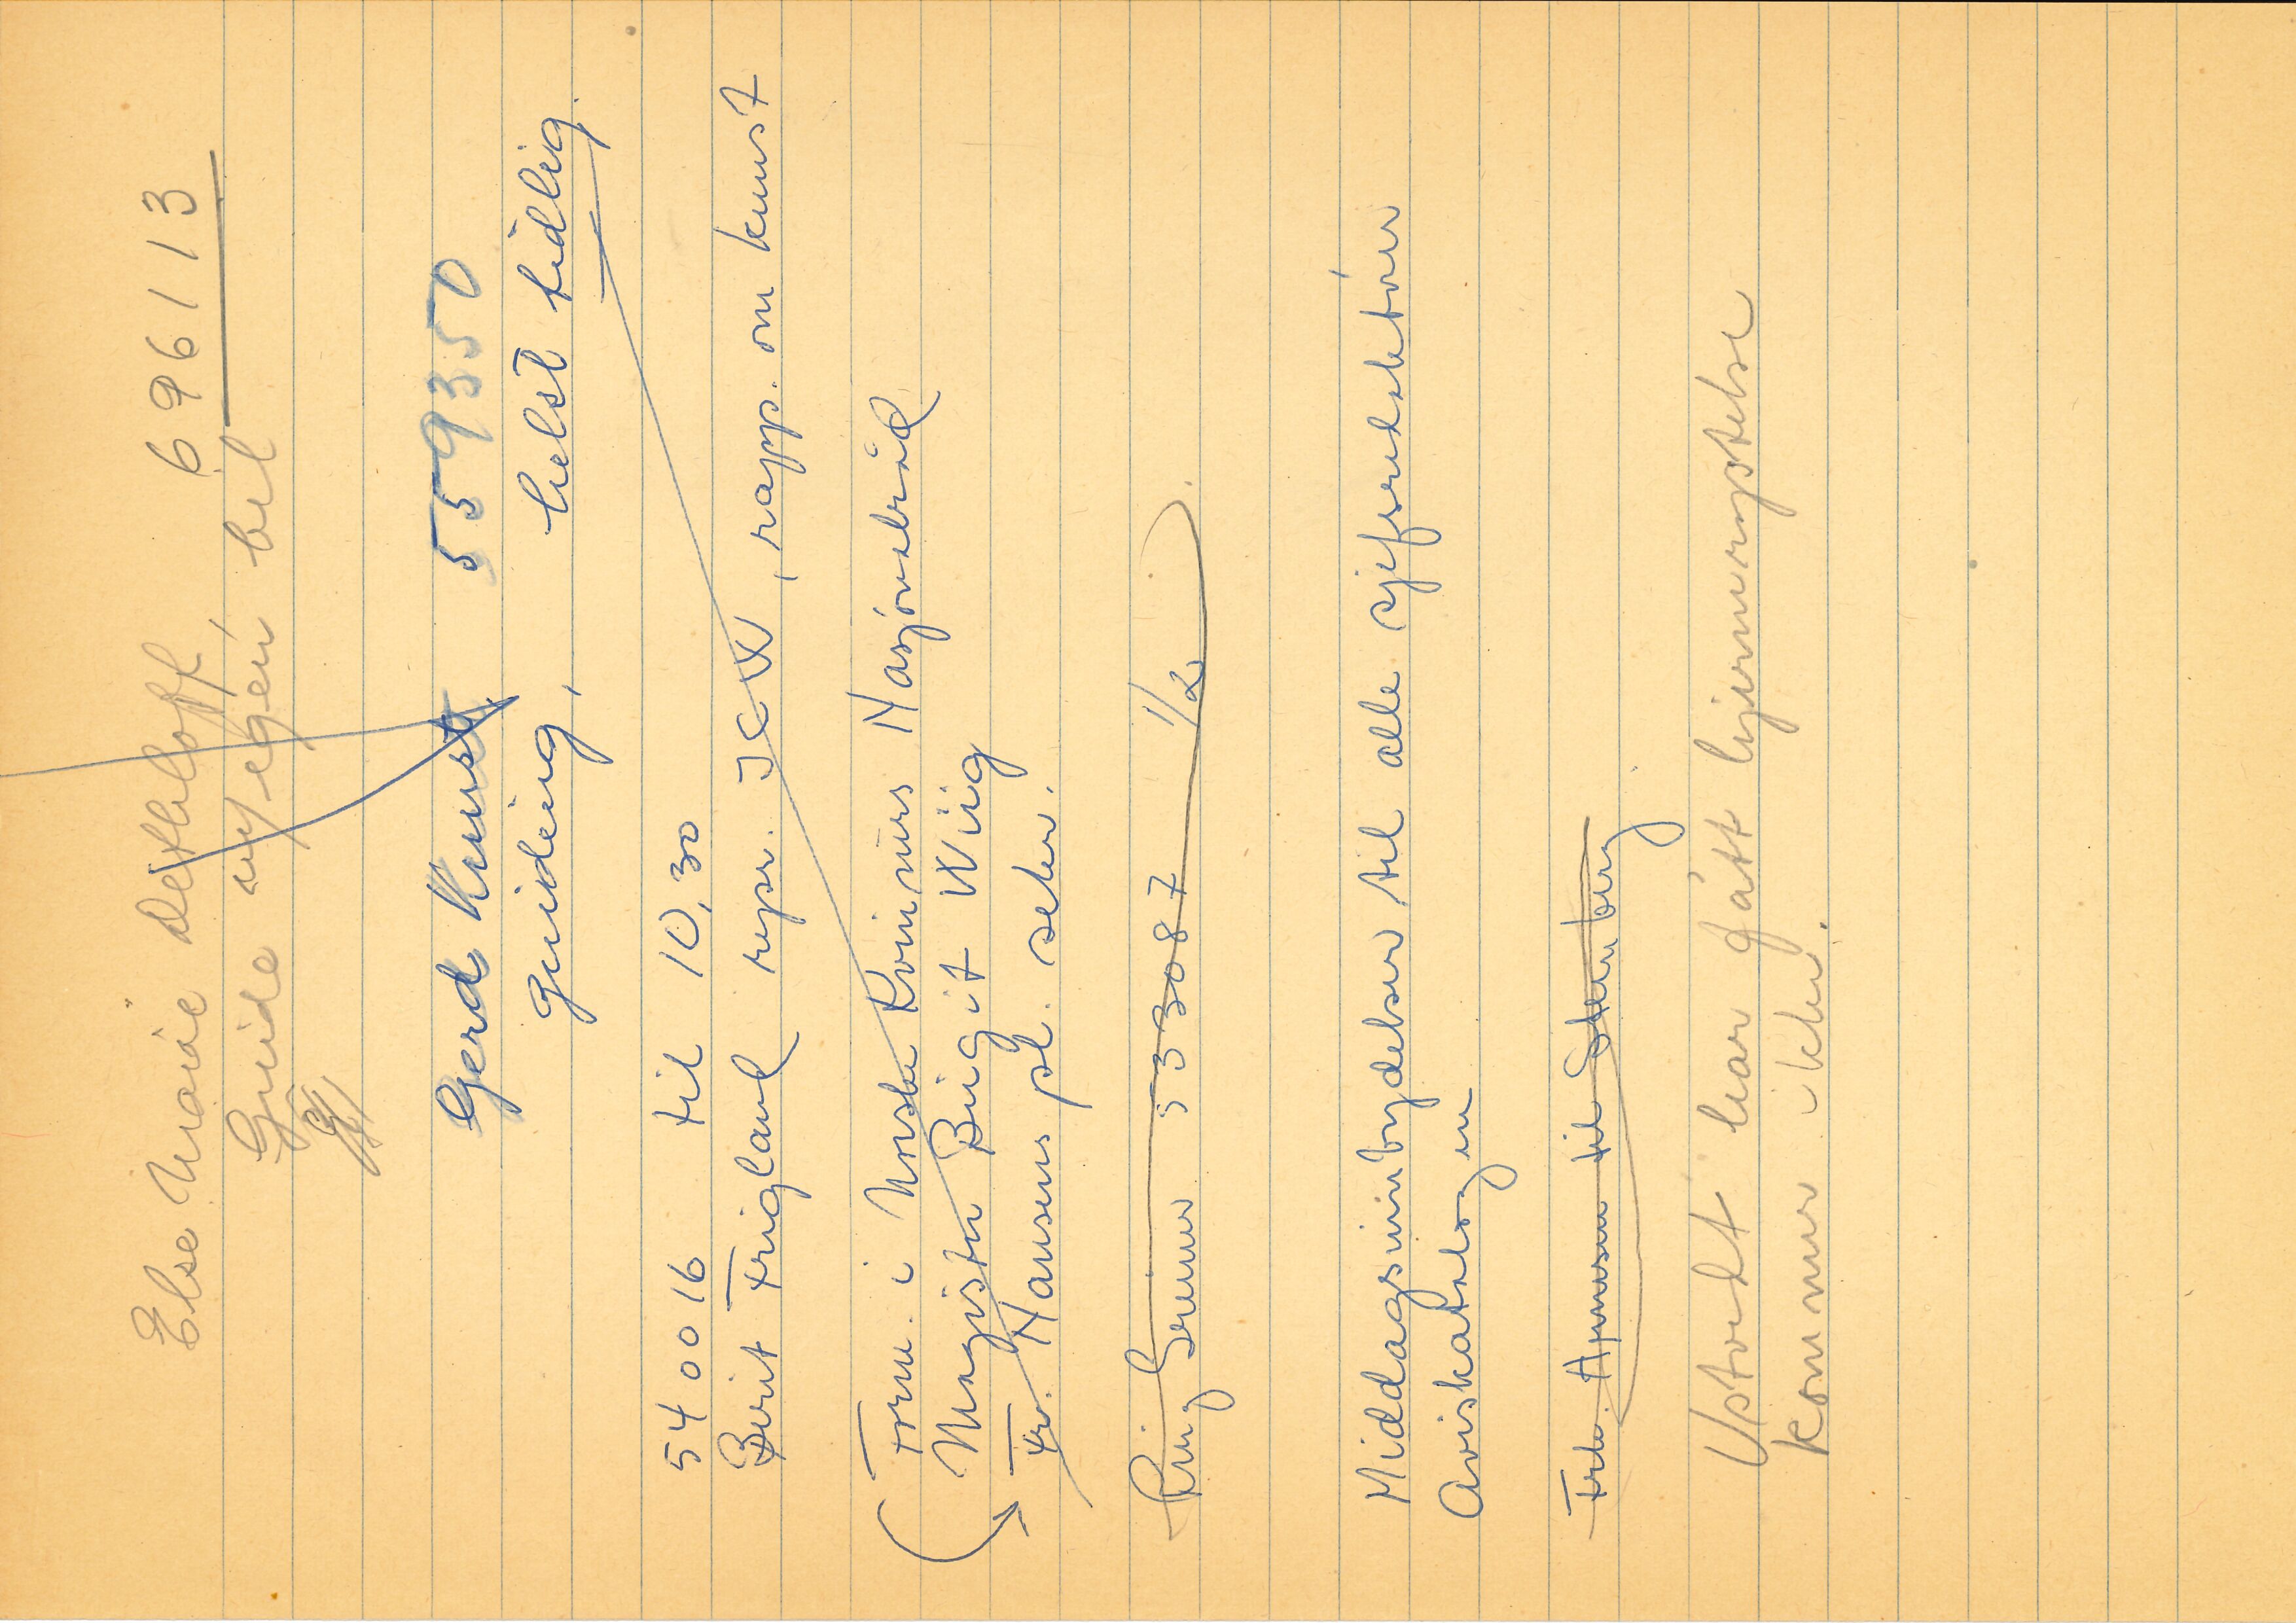 Else Marie Dethloff 696113
Guide m/ egen bil
Gerd Kunst 559350
Guiding, helst tidlig.
540016 til 10,30
Berit Frigland repr. ICW, rapp. om kunst
Form. i Norske Kvinners Nasjonalråd
Magister Birgit Wiig
Fr. Nansens pl. selv.
Ring Grenner 533087 1/2
Middagsinnbydelser til alle sjefredaktører
Aviskatalogen
til
Ustvedt har fått hjernerystelse
kommer ikke.